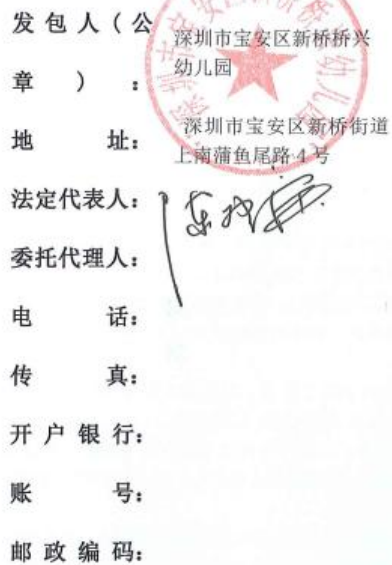 发包人（公 深圳市宝安区新桥桥兴
章）： 幼儿园
地址： 深圳市宝安区新桥街道
上南蒲鱼尾路4号
法定代表人：
委托代理人：
电话：
传真：
开户银行：
账号：
邮政编码：